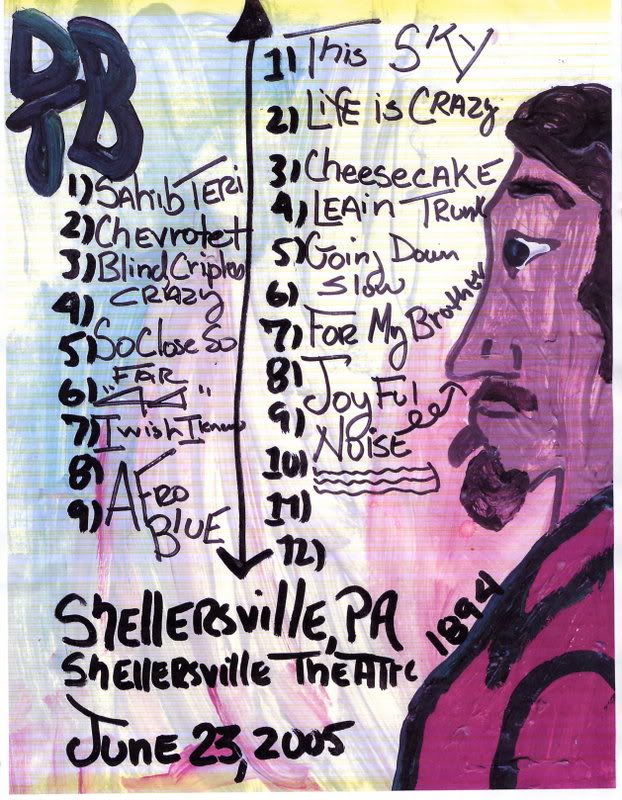 DTB
1) Sahib Teri
2) Chevrolet
3) Blind Cripled
4) CRAZY
5) So Close So
6) "FAR"
7) I wish I knew
8) AFRO
9) BLUE
1) This SKY
2) LiFE is CRAZy
3) CheeseCAKE
4) LEAin TRunk
5) Going Down
6) Slow
7) FOR My Brother
8) JoyFul
9) NOiSE
10)
11)
12)
ShellERSville, PA
ShellERSville THEATre
1894
JUNE 23, 2005